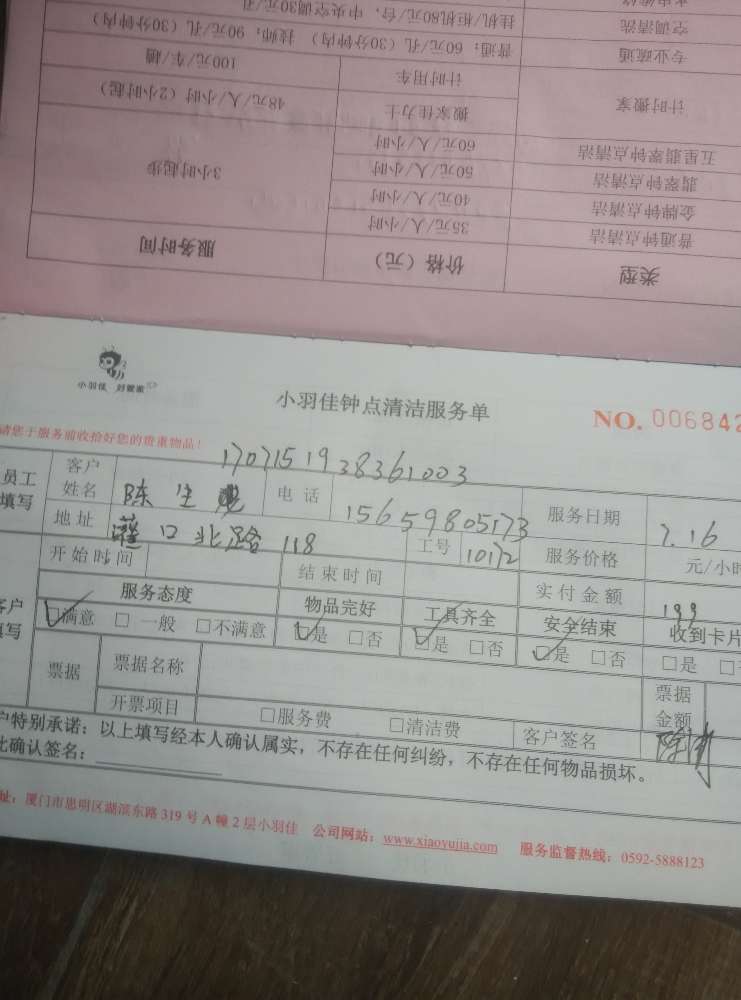 挂机/柜机80元/台，中央空调30元/孔
空调清洗
专业疏通 普通：60元/孔（30分钟内） 技师：90元/孔（30分钟内）
计时搬家 计时用车 100元/车/趟
搬家佳力士 48元/人/小时（2小时起）
五星翡翠钟点清洁 60元/人/小时
翡翠钟点清洁 50元/人/小时 3小时起步
金牌钟点清洁 40元/人/小时
普通钟点清洁 35元/人/小时
类型 价格（元） 服务时间
小羽佳 好管家
小羽佳钟点清洁服务单
NO. 006842
请您于服务前收拾好您的贵重物品！
1707151938361003
员工填写 客户姓名 陈生 电话 15659805173 服务日期 7.16
地址 灌口北路118 工号 10172 服务价格 元/小时
开始时间 结束时间 实付金额 199
客户填写 服务态度 物品完好 工具齐全 安全结束 收到卡片
☑满意 □一般 □不满意 ☑是 □否 ☑是 □否 ☑是 □否 □是 □
票据 票据名称 票据金额
开票项目 □服务费 □清洁费 客户签名
户特别承诺：以上填写经本人确认属实，不存在任何纠纷，不存在任何物品损坏。
此确认签名：
址：厦门市思明区湖滨东路319号A幢2层小羽佳 公司网站：www.xiaoyujia.com 服务监督热线：0592-5888123